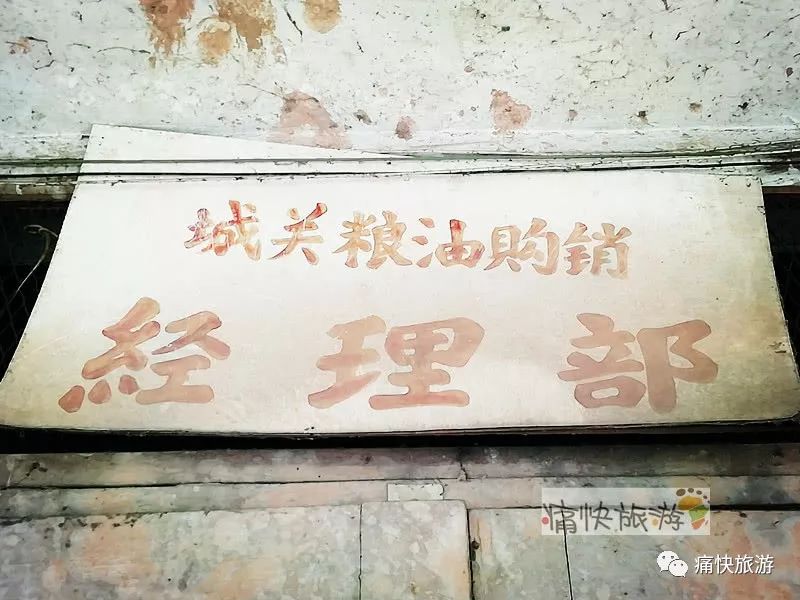 城关粮油购销
経理部
痛快旅游
痛快旅游